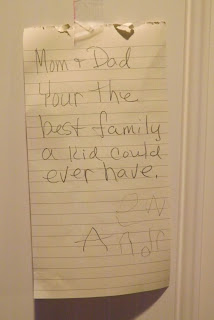 Mom + Dad
Your the
best family
a kid could
ever have.